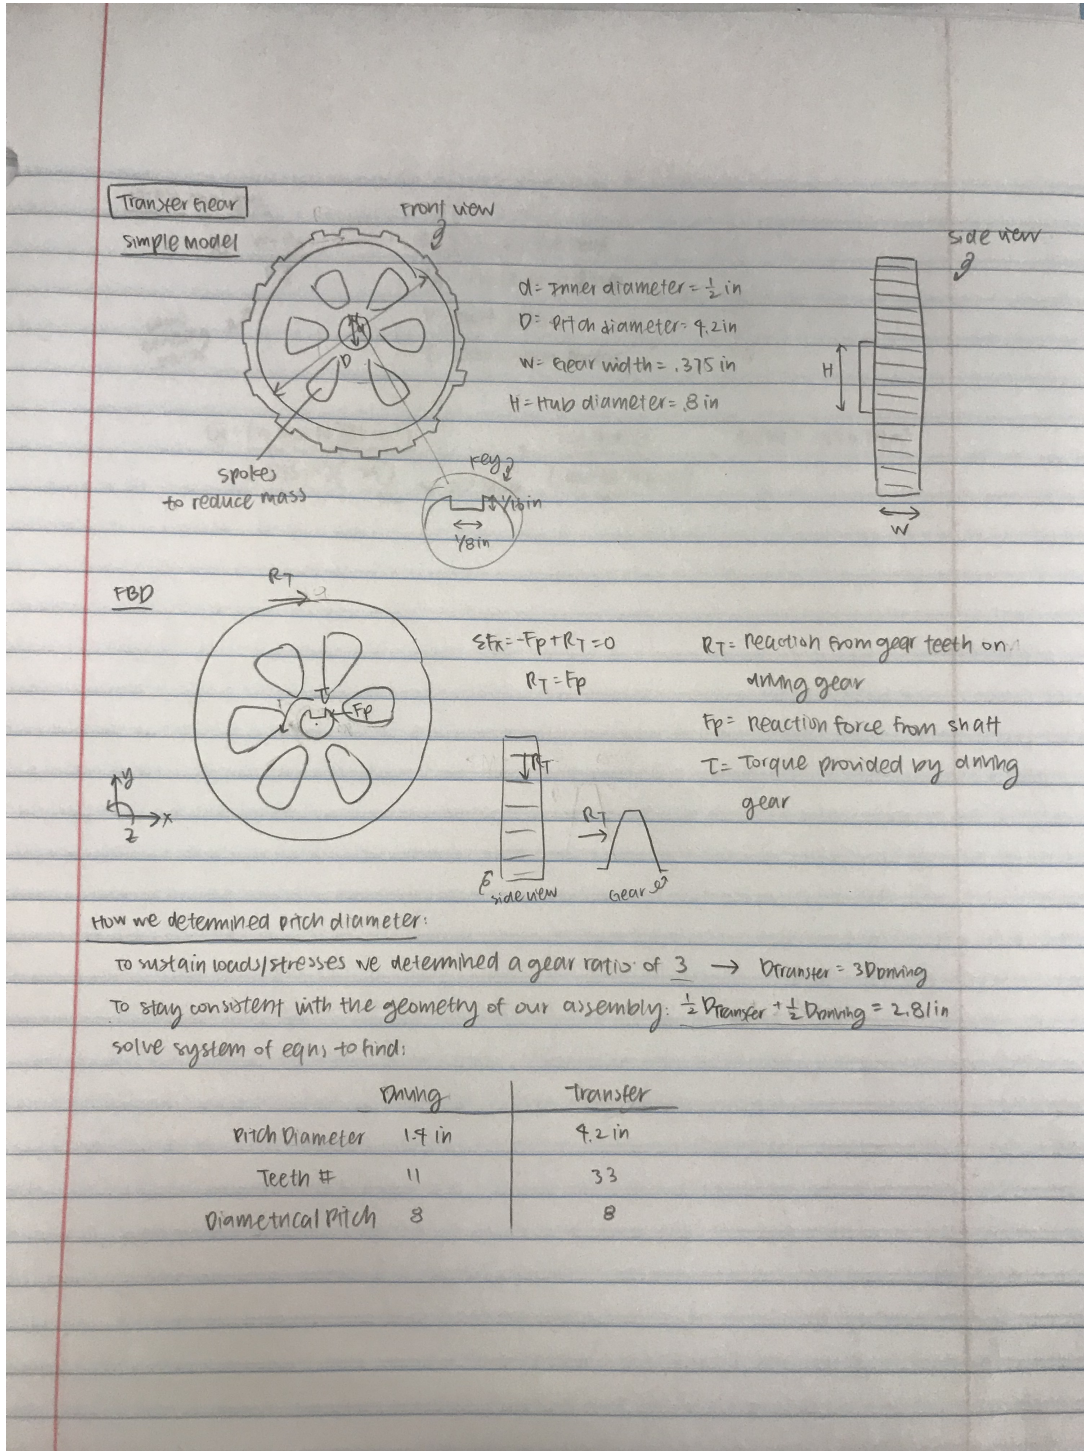 Transfer Gear
Front view
simple model
side view
d = Inner diameter = 1/2 in
D = Pitch diameter = 4.2 in
W = Gear width = .375 in
H = Hub diameter = .8 in
H
D
d
Key
spokes
to reduce mass
1/16 in
1/8 in
W
FBD
RT
ΣFx = -Fp + RT = 0
RT = Fp
RT = reaction from gear teeth on
driving gear
Fp = reaction force from shaft
T = Torque provided by driving
gear
T
Fp
RT
RT
y
x
z
side view
Gear
How we determined pitch diameter:
To sustain loads/stresses we determined a gear ratio of 3 → Dtransfer = 3Ddriving
To stay consistent with the geometry of our assembly: 1/2 Dtransfer + 1/2 Ddriving = 2.81in
solve system of eqns to find:
Driving Transfer
Pitch Diameter 1.4 in 4.2 in
Teeth # 11 33
Diametrical Pitch 8 8